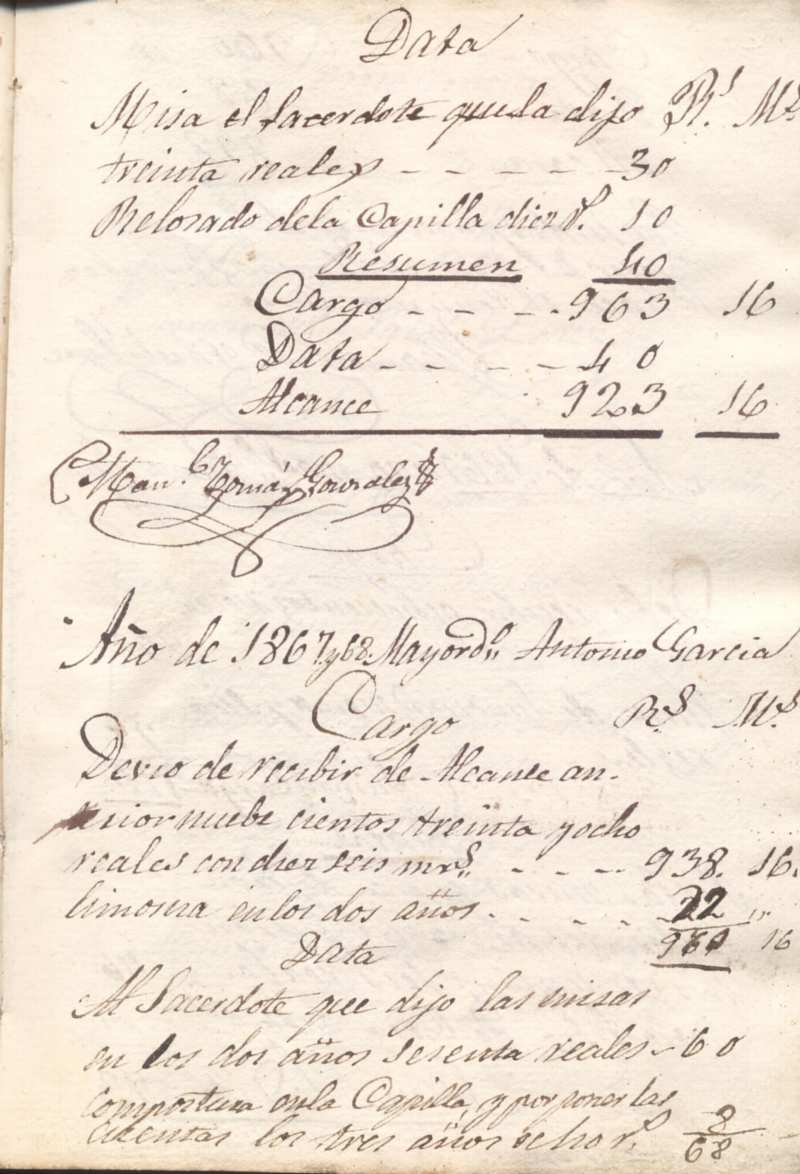 Data
Misa el Sacerdote que la dijo R.s M.s
treinta reales - - - - - - 30
Relosado dela Capilla diez r.s 10
Resumen 40
Cargo - - - - - 963 16
Data - - - - - 40
Alcance 923 16
Man.l Tomás Gonzalez
Año de 1867 y 68. Mayord.o Antonio Garcia
Cargo R.s M.s
Devio de recibir de Alcance an-
terior nuebe cientos treinta y ocho
reales con diez seis mr.s - - - - 938. 16.
limosna en los dos años - - - - - 22 "
960 16
Data
Al Sacerdote que dijo las misas
en los dos años sesenta reales - 60
compostura en la Capilla, y por poner las
cuentas los tres años ocho r.s 8
68